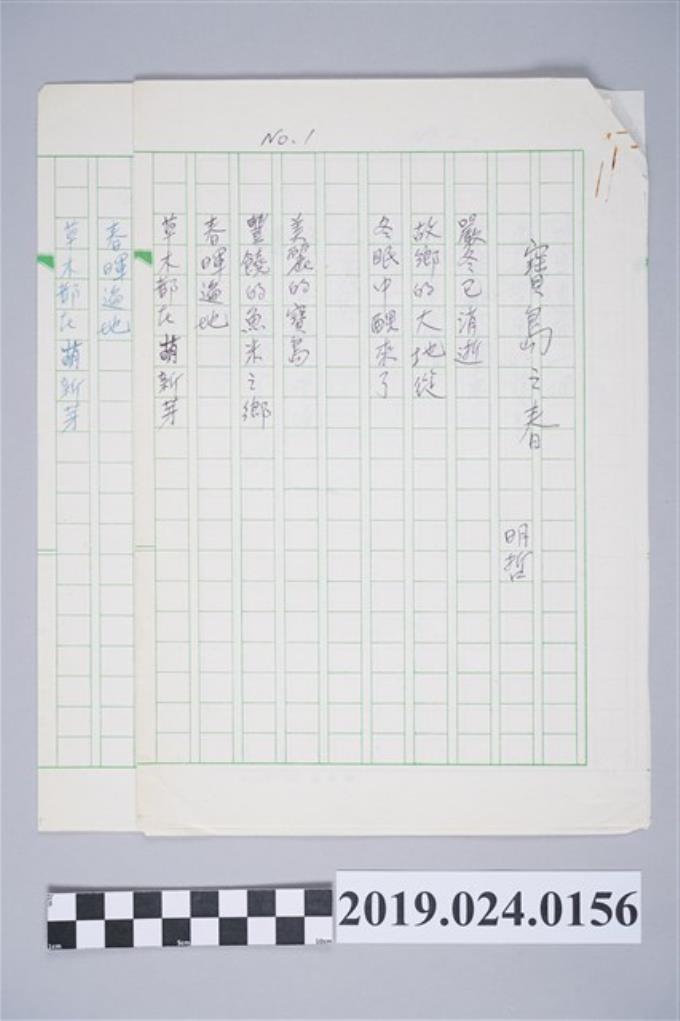 No.1
寶島之春
明哲
嚴冬已消逝
故鄉的大地從
冬眠中醒來了
美麗的寶島
豐饒的魚米之鄉
春暉遍地
草木都在萌新芽
春暉遍地
草木都在萌新芽
1cm
5cm
10cm
2019.024.0156